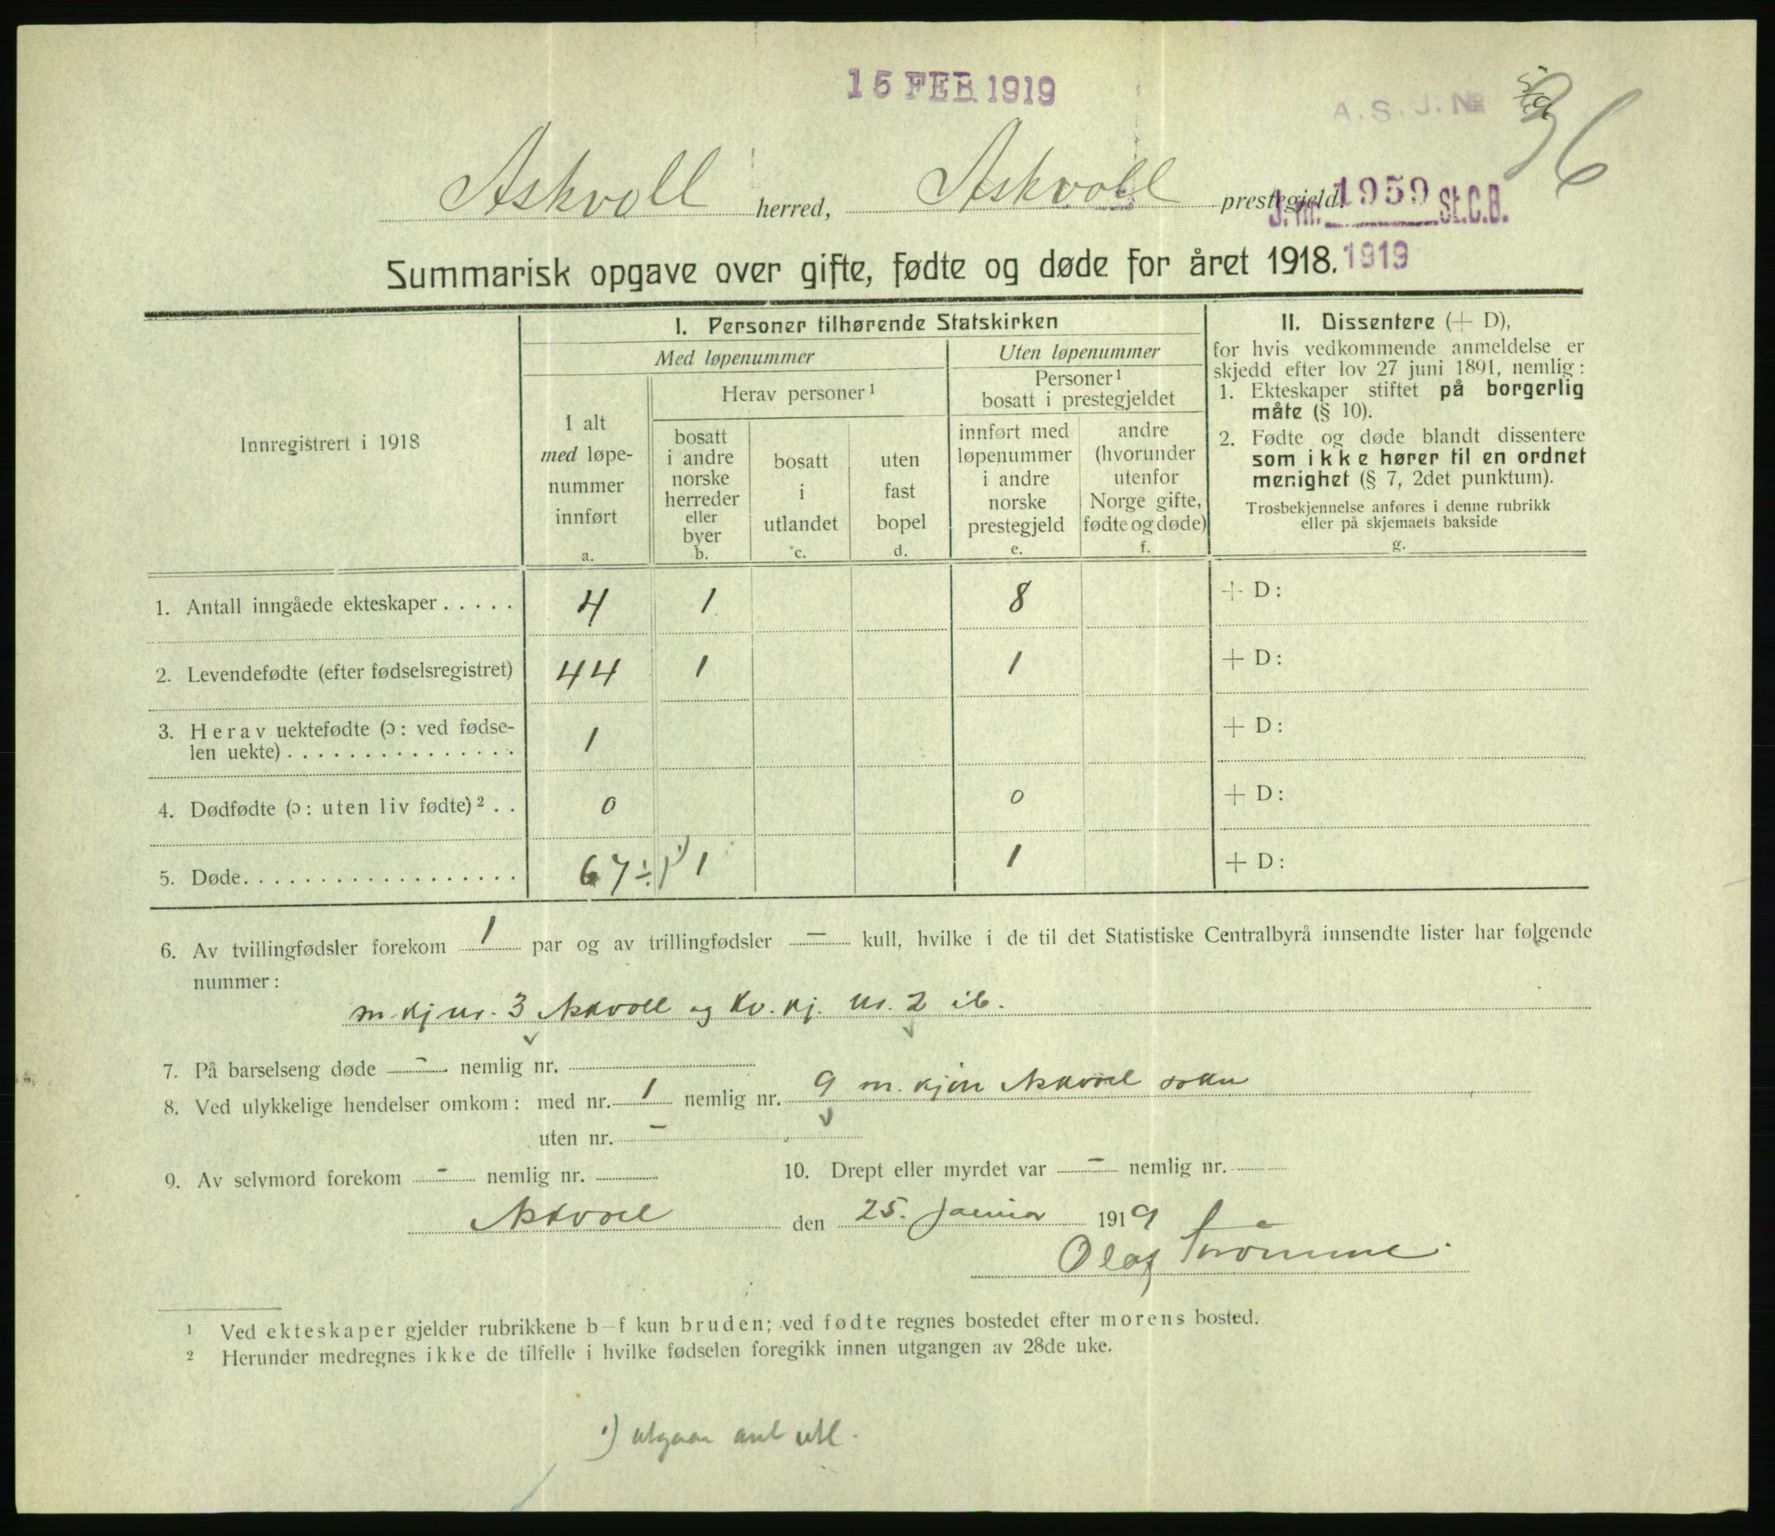 15 FEB 1919
A.S.J. No 36
Askvoll herred, Askvoll prestegjeld.
J. nr. 1959 St.C.B.
1919
Summarisk opgave over gifte, fødte og døde for året 1918.
Innregistrert i 1918
I. Personer tilhørende Statskirken
Med løpenummer
Uten løpenummer
I alt
med løpe-
nummer
innført
a.
Herav personer¹
bosatt
i andre
norske
herreder
eller
byer
b.
bosatt
i
utlandet
c.
uten
fast
bopel
d.
Personer¹
bosatt i prestegjeldet
innført med
løpenummer
i andre
norske
prestegjeld
e.
andre
(hvorunder
utenfor
Norge gifte,
fødte og døde)
f.
II. Dissentere (+ D),
for hvis vedkommende anmeldelse er
skjedd efter lov 27 juni 1891, nemlig:
1. Ekteskaper stiftet på borgerlig
måte (§ 10).
2. Fødte og døde blandt dissentere
som ikke hører til en ordnet
menighet (§ 7, 2det punktum).
Trosbekjennelse anføres i denne rubrikk
eller på skjemaets bakside
g.
1. Antall inngåede ekteskaper..... 4 1 8 + D:
2. Levendefødte (efter fødselsregistret) 44 1 1 + D:
3. Herav uektefødte (ɔ: ved fødse-
len uekte)............... 1 + D:
4. Dødfødte (ɔ: uten liv fødte)² .. 0 0 + D:
5. Døde.................. 67 ÷ 1 ¹) 1 1 + D:
6. Av tvillingfødsler forekom 1 par og av trillingfødsler – kull, hvilke i de til det Statistiske Centralbyrå innsendte lister har følgende
nummer:
m. kj nr. 3 Askvoll og kv. kj. nr. 2 ib.
7. På barselseng døde – nemlig nr.
8. Ved ulykkelige hendelser omkom: med nr. 1 nemlig nr. 9 m. kjøn Askvoll sokn
uten nr. –
9. Av selvmord forekom – nemlig nr. 10. Drept eller myrdet var – nemlig nr.
Askvoll den 25. januar 1919
Olaf Strömme.
¹ Ved ekteskaper gjelder rubrikkene b–f kun bruden; ved fødte regnes bostedet efter morens bosted.
² Herunder medregnes ikke de tilfelle i hvilke fødselen foregikk innen utgangen av 28de uke.
¹) utgaar